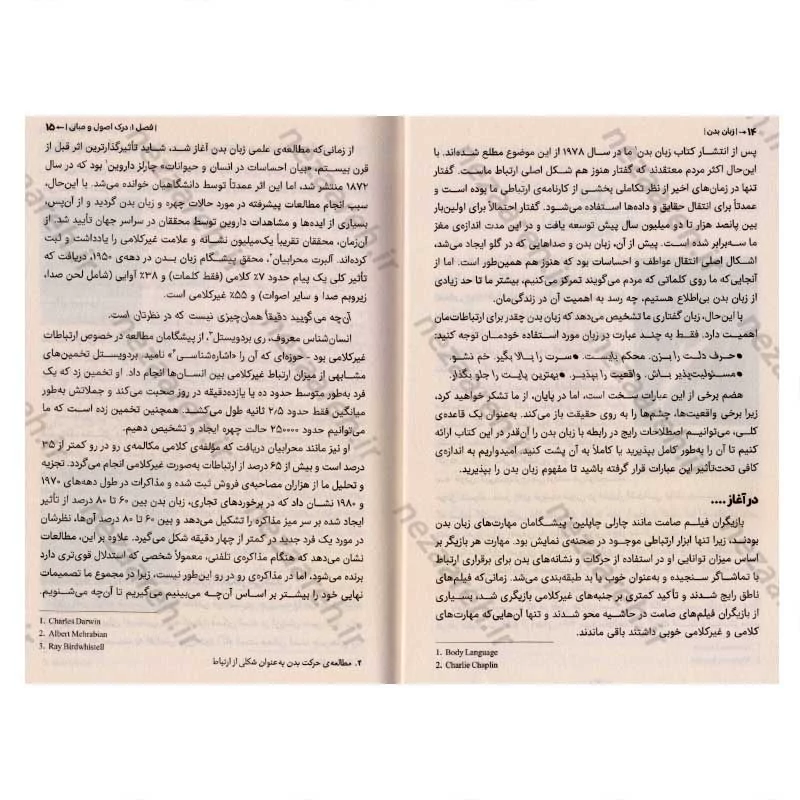 ۱۴ → | زبان بدن |
پس از انتشار کتاب زبان بدن¹ ما در سال ۱۹۷۸ از این موضوع مطلع شده‌اند. با
این‌حال اکثر مردم معتقدند که گفتار هنوز هم شکل اصلی ارتباط ماست. گفتار
تنها در زمان‌های اخیر از نظر تکاملی بخشی از کارنامه‌ی ارتباطی ما بوده است و
عمدتاً برای انتقال حقایق و داده‌ها استفاده می‌شود. گفتار احتمالاً برای اولین‌بار
بین پانصد هزار تا دو میلیون سال پیش توسعه یافت و در این مدت اندازه‌ی مغز
ما سه‌برابر شده است. پیش از آن، زبان بدن و صداهایی که در گلو ایجاد می‌شد،
اشکال اصلی انتقال عواطف و احساسات بود که هنوز هم همین‌طور است. اما از
آنجایی‌که ما روی کلماتی که مردم می‌گویند تمرکز می‌کنیم، بیشتر ما تا حد زیادی
از زبان بدن بی‌اطلاع هستیم، چه رسد به اهمیت آن در زندگی‌مان.
با این‌حال، زبان گفتاری ما تشخیص می‌دهد که زبان بدن چقدر برای ارتباطات‌مان
اهمیت دارد. فقط به چند عبارت در زبان مورد استفاده خودمان توجه کنید:
• حرف دلت را بزن. محکم بایست. • سرت را بالا بگیر. خم نشو.
• مسئولیت‌پذیر باش. واقعیت را بپذیر. • بهترین پایت را جلو بگذار.
هضم برخی از این عبارات سخت است، اما در پایان، از ما تشکر خواهید کرد،
زیرا برخی واقعیت‌ها، چشم‌ها را به روی حقیقت باز می‌کند. به‌عنوان یک قاعده‌ی
کلی، می‌توانیم اصطلاحات رایج در رابطه با زبان بدن را آن‌قدر در این کتاب ارائه
کنیم تا آن را به‌طور کامل بپذیرید یا کاملاً به آن پشت کنید. امیدواریم به اندازه‌ی
کافی تحت‌تأثیر این عبارات قرار گرفته باشید تا مفهوم زبان بدن را بپذیرید.
در آغاز ....
بازیگران فیلم صامت مانند چارلی چاپلین² پیشگامان مهارت‌های زبان بدن
بودند، زیرا تنها ابزار ارتباطی موجود در صحنه‌ی نمایش بود. مهارت هر بازیگر بر
اساس میزان توانایی او در استفاده از حرکات و نشانه‌های بدن برای برقراری ارتباط
با تماشاگر سنجیده و به‌عنوان خوب یا بد طبقه‌بندی می‌شد. زمانی‌که فیلم‌های
ناطق رایج شدند و تأکید کمتری بر جنبه‌های غیرکلامی بازیگری شد، بسیاری
از بازیگران فیلم‌های صامت در حاشیه محو شدند و تنها آن‌هایی‌که مهارت‌های
کلامی و غیرکلامی خوبی داشتند باقی ماندند.
1. Body Language
2. Charlie Chaplin
| فصل ۱: درک اصول و مبانی | ← ۱۵
از زمانی‌که مطالعه‌ی علمی زبان بدن آغاز شد، شاید تأثیرگذارترین اثر قبل از
قرن بیستم، «بیان احساسات در انسان و حیوانات» چارلز داروین¹ بود که در سال
۱۸۷۲ منتشر شد، اما این اثر عمدتاً توسط دانشگاهیان خوانده می‌شد. با این‌حال،
سبب انجام مطالعات پیشرفته در مورد حالات چهره و زبان بدن گردید و از آن‌پس،
بسیاری از ایده‌ها و مشاهدات داروین توسط محققان در سراسر جهان تأیید شد. از
آن‌زمان، محققان تقریباً یک‌میلیون نشانه و علامت غیرکلامی را یادداشت و ثبت
کرده‌اند. آلبرت محرابیان²، محقق پیشگام زبان بدن در دهه‌ی ۱۹۵۰، دریافت که
تأثیر کلی یک پیام حدود ۷٪ کلامی (فقط کلمات) و ۳۸٪ آوایی (شامل لحن صدا،
زیروبم صدا و سایر اصوات) و ۵۵٪ غیرکلامی است.
آن‌چه می‌گویید دقیقاً همان‌چیزی نیست که در نظرتان است.
انسان‌شناس معروف، ری بردویستل³، از پیشگامان مطالعه در خصوص ارتباطات
غیرکلامی بود - حوزه‌ای که آن را «اشاره‌شناسی⁴» نامید. بردویستل تخمین‌های
مشابهی از میزان ارتباط غیرکلامی بین انسان‌ها انجام داد. او تخمین زد که یک
فرد به‌طور متوسط حدود ده یا یازده‌دقیقه در روز صحبت می‌کند و جملاتش به‌طور
میانگین فقط حدود ۲/۵ ثانیه طول می‌کشد. همچنین تخمین زده است که ما
می‌توانیم حدود ۲۵۰۰۰۰ حالت چهره ایجاد و تشخیص دهیم.
او نیز مانند محرابیان دریافت که مؤلفه‌ی کلامی مکالمه‌ی رو در رو کمتر از ۳۵
درصد است و بیش از ۶۵ درصد از ارتباطات به‌صورت غیرکلامی انجام می‌گردد. تجزیه
و تحلیل ما از هزاران مصاحبه‌ی فروش ثبت شده و مذاکرات در طول دهه‌های ۱۹۷۰
و ۱۹۸۰ نشان داد که در برخوردهای تجاری، زبان بدن بین ۶۰ تا ۸۰ درصد از تأثیر
ایجاد شده بر سر میز مذاکره را تشکیل می‌دهد و بین ۶۰ تا ۸۰ درصد آن‌ها، نظرشان
در مورد یک فرد جدید در کمتر از چهار دقیقه شکل می‌گیرد. علاوه بر این، مطالعات
نشان می‌دهد که هنگام مذاکره‌ی تلفنی، معمولاً شخصی که استدلال قوی‌تری دارد
برنده می‌شود، اما در مذاکره‌ی رو در رو این‌طور نیست، زیرا در مجموع ما تصمیمات
نهایی خود را بیشتر بر اساس آن‌چه می‌بینیم می‌گیریم تا آن‌چه می‌شنویم.
1. Charles Darwin
2. Albert Mehrabian
3. Ray Birdwhistell
۴. مطالعه‌ی حرکت بدن به‌عنوان شکلی از ارتباط